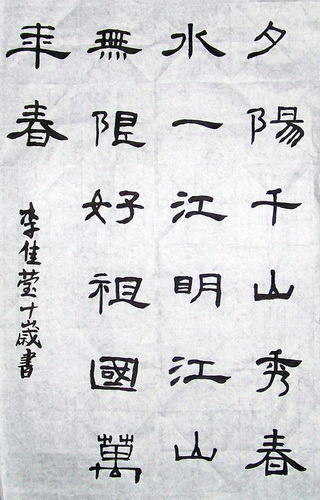 夕陽千山秀春
水一江明江山
無限好祖國萬
年春
李佳莹十歲書